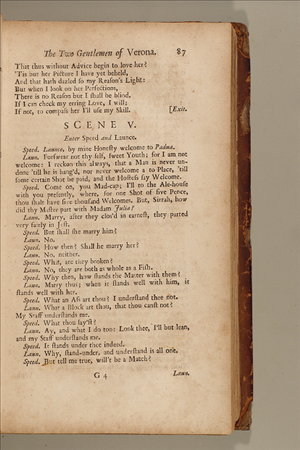 The Two Gentlemen of Verona. 87
That thus without Advice begin to love her?
'Tis but her Picture I have yet beheld,
And that hath dazled so my Reason's Light:
But when I look on her Perfections,
There is no Reason but I shall be blind.
If I can check my erring Love, I will;
If not, to compass her I'll use my Skill. [Exit.
SCENE V.
Enter Speed and Launce.
Speed. Launce, by mine Honesty welcome to Padua.
Laun. Forswear not thy self, sweet Youth; for I am not
welcome: I reckon this always, that a Man is never un-
done 'till he is hang'd, nor never welcome to a Place, 'till
some certain Shot be paid, and the Hostess say Welcome.
Speed. Come on, you Mad-cap; I'll to the Ale-house
with you presently, where, for one Shot of five Pence,
thou shalt have five thousand Welcomes. But, Sirrah, how
did thy Master part with Madam Julia?
Laun. Marry, after they clos'd in earnest, they parted
very fairly in Jest.
Speed. But shall she marry him?
Laun. No.
Speed. How then? Shall he marry her?
Laun. No, neither.
Speed. What, are they broken?
Laun. No, they are both as whole as a Fish.
Speed. Why then, how stands the Matter with them?
Laun. Marry thus; when it stands well with him, it
stands well with her.
Speed. What an Ass art thou? I understand thee not.
Laun. What a Block art thou, that thou canst not?
My Staff understands me.
Speed. What thou say'st?
Laun. Ay, and what I do too: Look thee, I'll but lean,
and my Staff understands me.
Speed. It stands under thee indeed.
Laun. Why, stand-under, and understand is all one.
Speed. But tell me true, will't be a Match?
G 4 Laun.